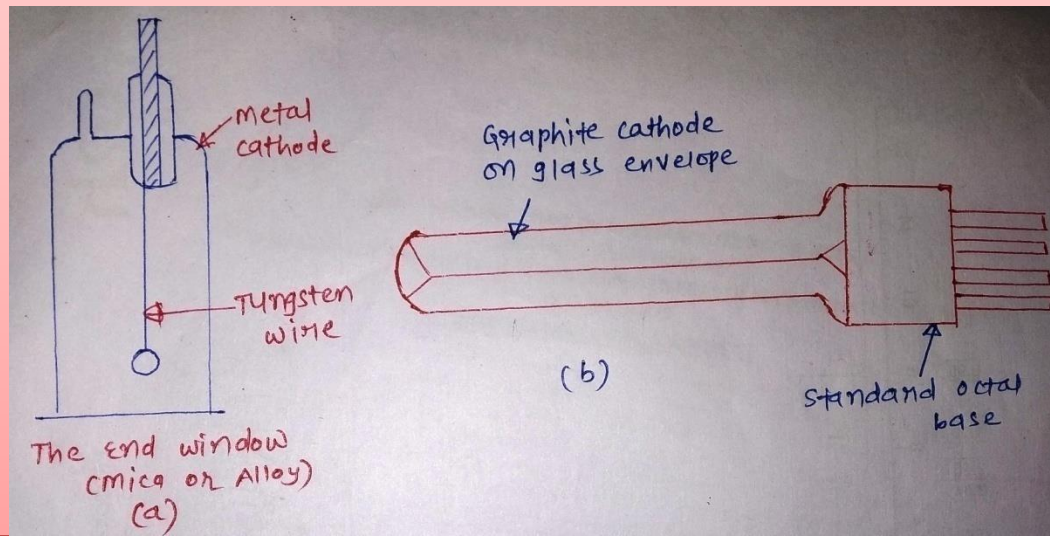 metal
cathode
Tungsten
wire
The End window
(mica or Alloy)
(a)
Graphite cathode
on glass envelope
(b)
Standard octal
base